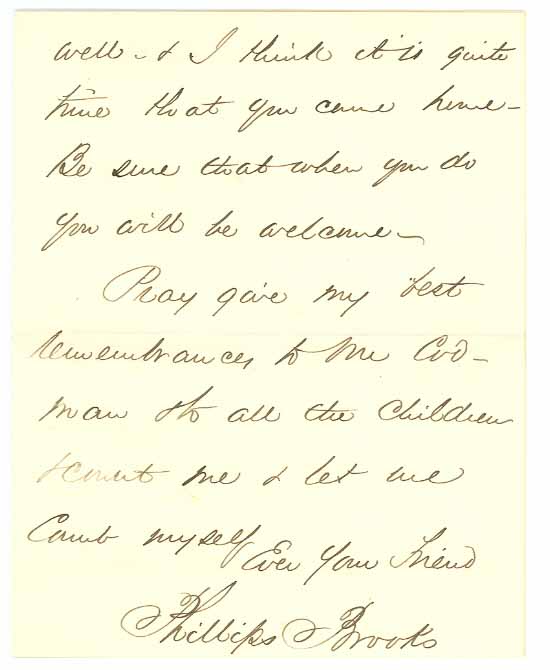 well - & I think it is quite
time that you came home -
Be sure that when you do
you will be welcome -
Pray give my best
remembrances to Mr Cod-
man & to all the children
& count me & let me
Count myself Ever Your Friend
Phillips Brooks